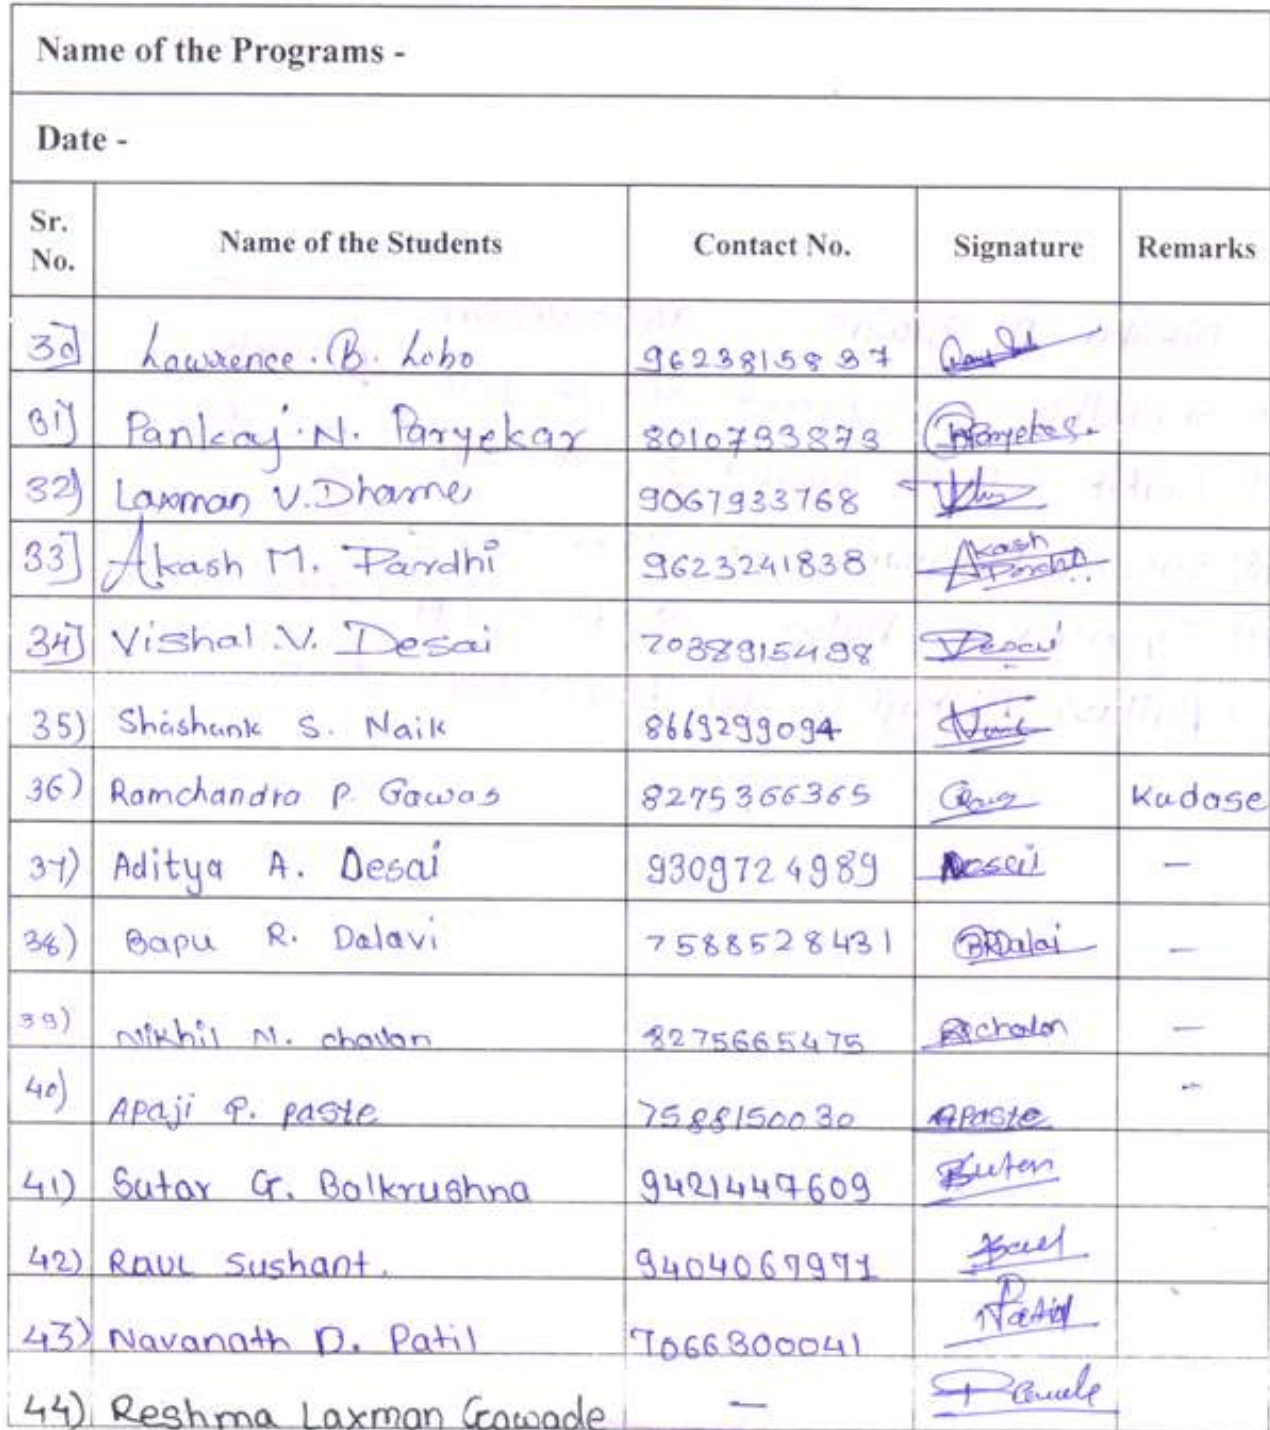 Name of the Programs -
Date -
Sr. No. Name of the Students Contact No. Signature Remarks
30] Lawrence. B. Lobo 9623815837
31] Pankaj. N. Paryekar 8010793873
32) Laxman V. Dhame 9067933768
33] Akash M. Pardhi 9623241838 Akash Pardhi
34] Vishal .V. Desai 7038915498 Desai
35) Shashank S. Naik 8669299094 Naik
36) Ramchandra P. Gawas 8275366365 Kudase
37) Aditya A. Desai 9309724989 Desai –
38) Bapu R. Dalavi 7588528431 BRDalai –
39) Nikhil N. chavan 8275665475 –
40) Apaji P. paste 7588150030 APaste –
41) Sutar G. Balkrushna 9421447609
42) Raul Sushant. 9404067971
43) Navanath D. Patil 7066300041 Patil
44) Reshma Laxman Gawade –